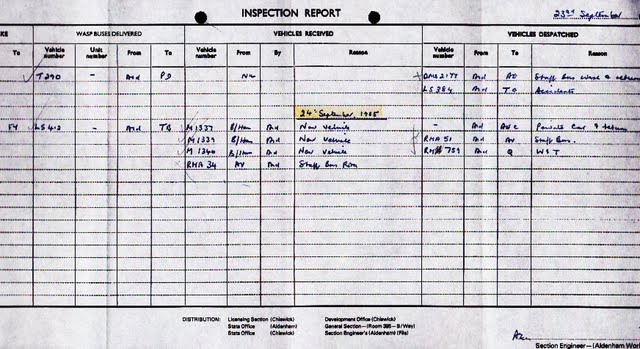 INSPECTION REPORT 23rd September
KE WASP BUSES DELIVERED VEHICLES RECEIVED VEHICLES DESPATCHED
To Vehicle number Unit number From To Vehicle number From By Reason Vehicle number From To Reason
T290 - And PD DMS2177 And Staff Bus Work & return
LS384 And Accidents
24th September, 1985
LS412 - And M1337 B/Ham And New Vehicle - And Private Car & return
M1339 B/Ham And New Vehicle RMA 51 And AV Staff Bus.
M1340 B/Ham And New Vehicle RM 759 And Q
RMA 34 AV And Staff Bus Run
DISTRIBUTION: Licensing Section (Chiswick) Development Office (Chiswick)
Stats Office (Aldenham) General Section—(Room 395 - B/Way)
Stats Office (Chiswick) Section Engineer's (Aldenham) (File)
Section Engineer—(Aldenham Wor